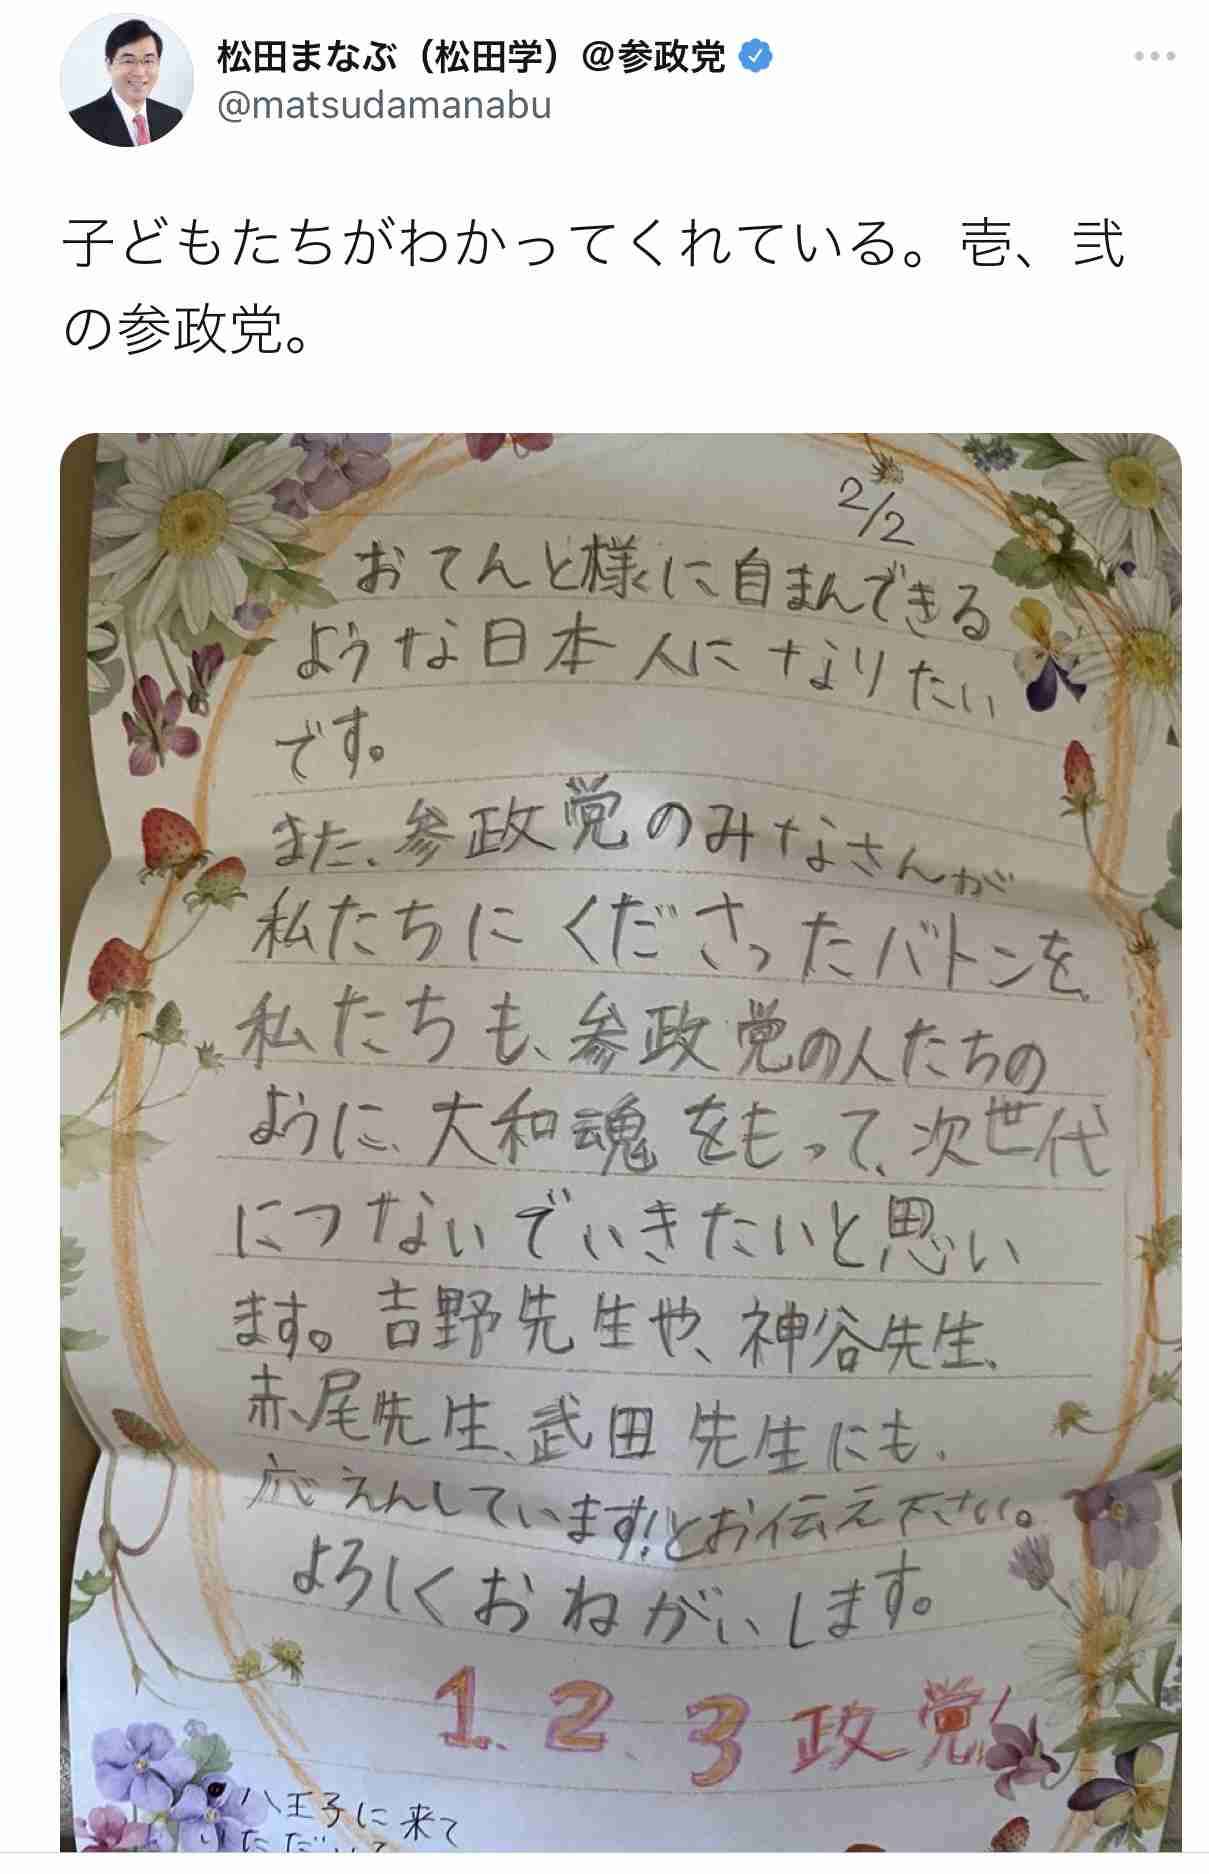 松田まなぶ（松田学）@参政党
@matsudamanabu
子どもたちがわかってくれている。壱、弐
の参政党。
2/2
おてんと様に自まんできる
ような日本人になりたい
です。
また、参政党のみなさんが
私たちにくださったバトンを、
私たちも、参政党の人たちの
ように、大和魂をもって、次世代
につないでいきたいと思い
ます。吉野先生や、神谷先生、
赤尾先生、武田先生にも、
応えんしています!とお伝え下さい。
よろしくおねがいします。
1、2、3政党!
八王子に来て
いただいて